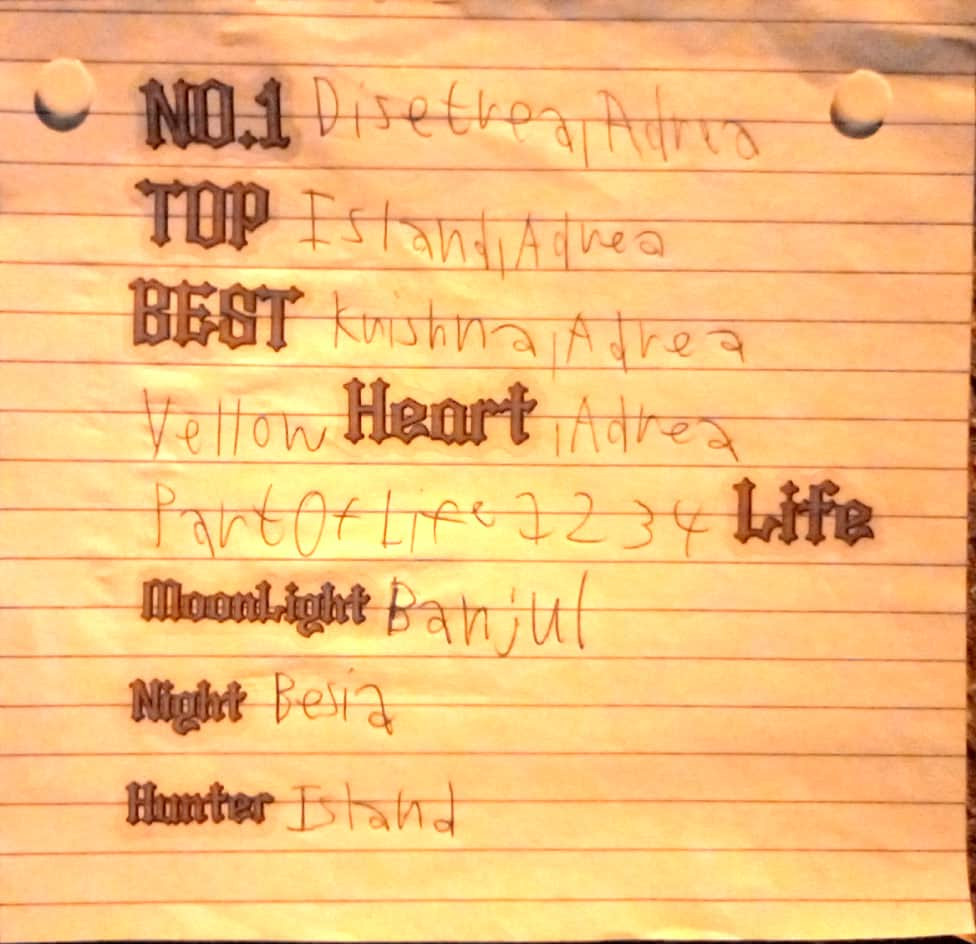 NO.1 Disetrea,Adrea
TOP Island,Adrea
BEST Krishna,Adrea
Vellow Heart ,Adrea
Part Of Life 1234 Life
MoonLight Banjul
Night Besia
Hunter Island